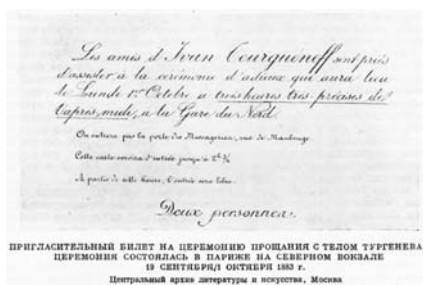 Les amis d'Ivan Tourguéneff sont priés
d'assister à la cérémonie d'adieux qui aura lieu
le Lundi 1er Octobre à trois heures très précises de
l'après-midi, à la Gare du Nord.
On entrera par la porte des Messageries, rue de Maubeuge.
Cette carte servira d'entrée jusqu'à 2h ¾
A partir de cette heure, l'entrée sera libre.
Deux personnes.
ПРИГЛАСИТЕЛЬНЫЙ БИЛЕТ НА ЦЕРЕМОНИЮ ПРОЩАНИЯ С ТЕЛОМ ТУРГЕНЕВА
ЦЕРЕМОНИЯ СОСТОЯЛАСЬ В ПАРИЖЕ НА СЕВЕРНОМ ВОКЗАЛЕ
19 СЕНТЯБРЯ/1 ОКТЯБРЯ 1883 г.
Центральный архив литературы и искусства, Москва